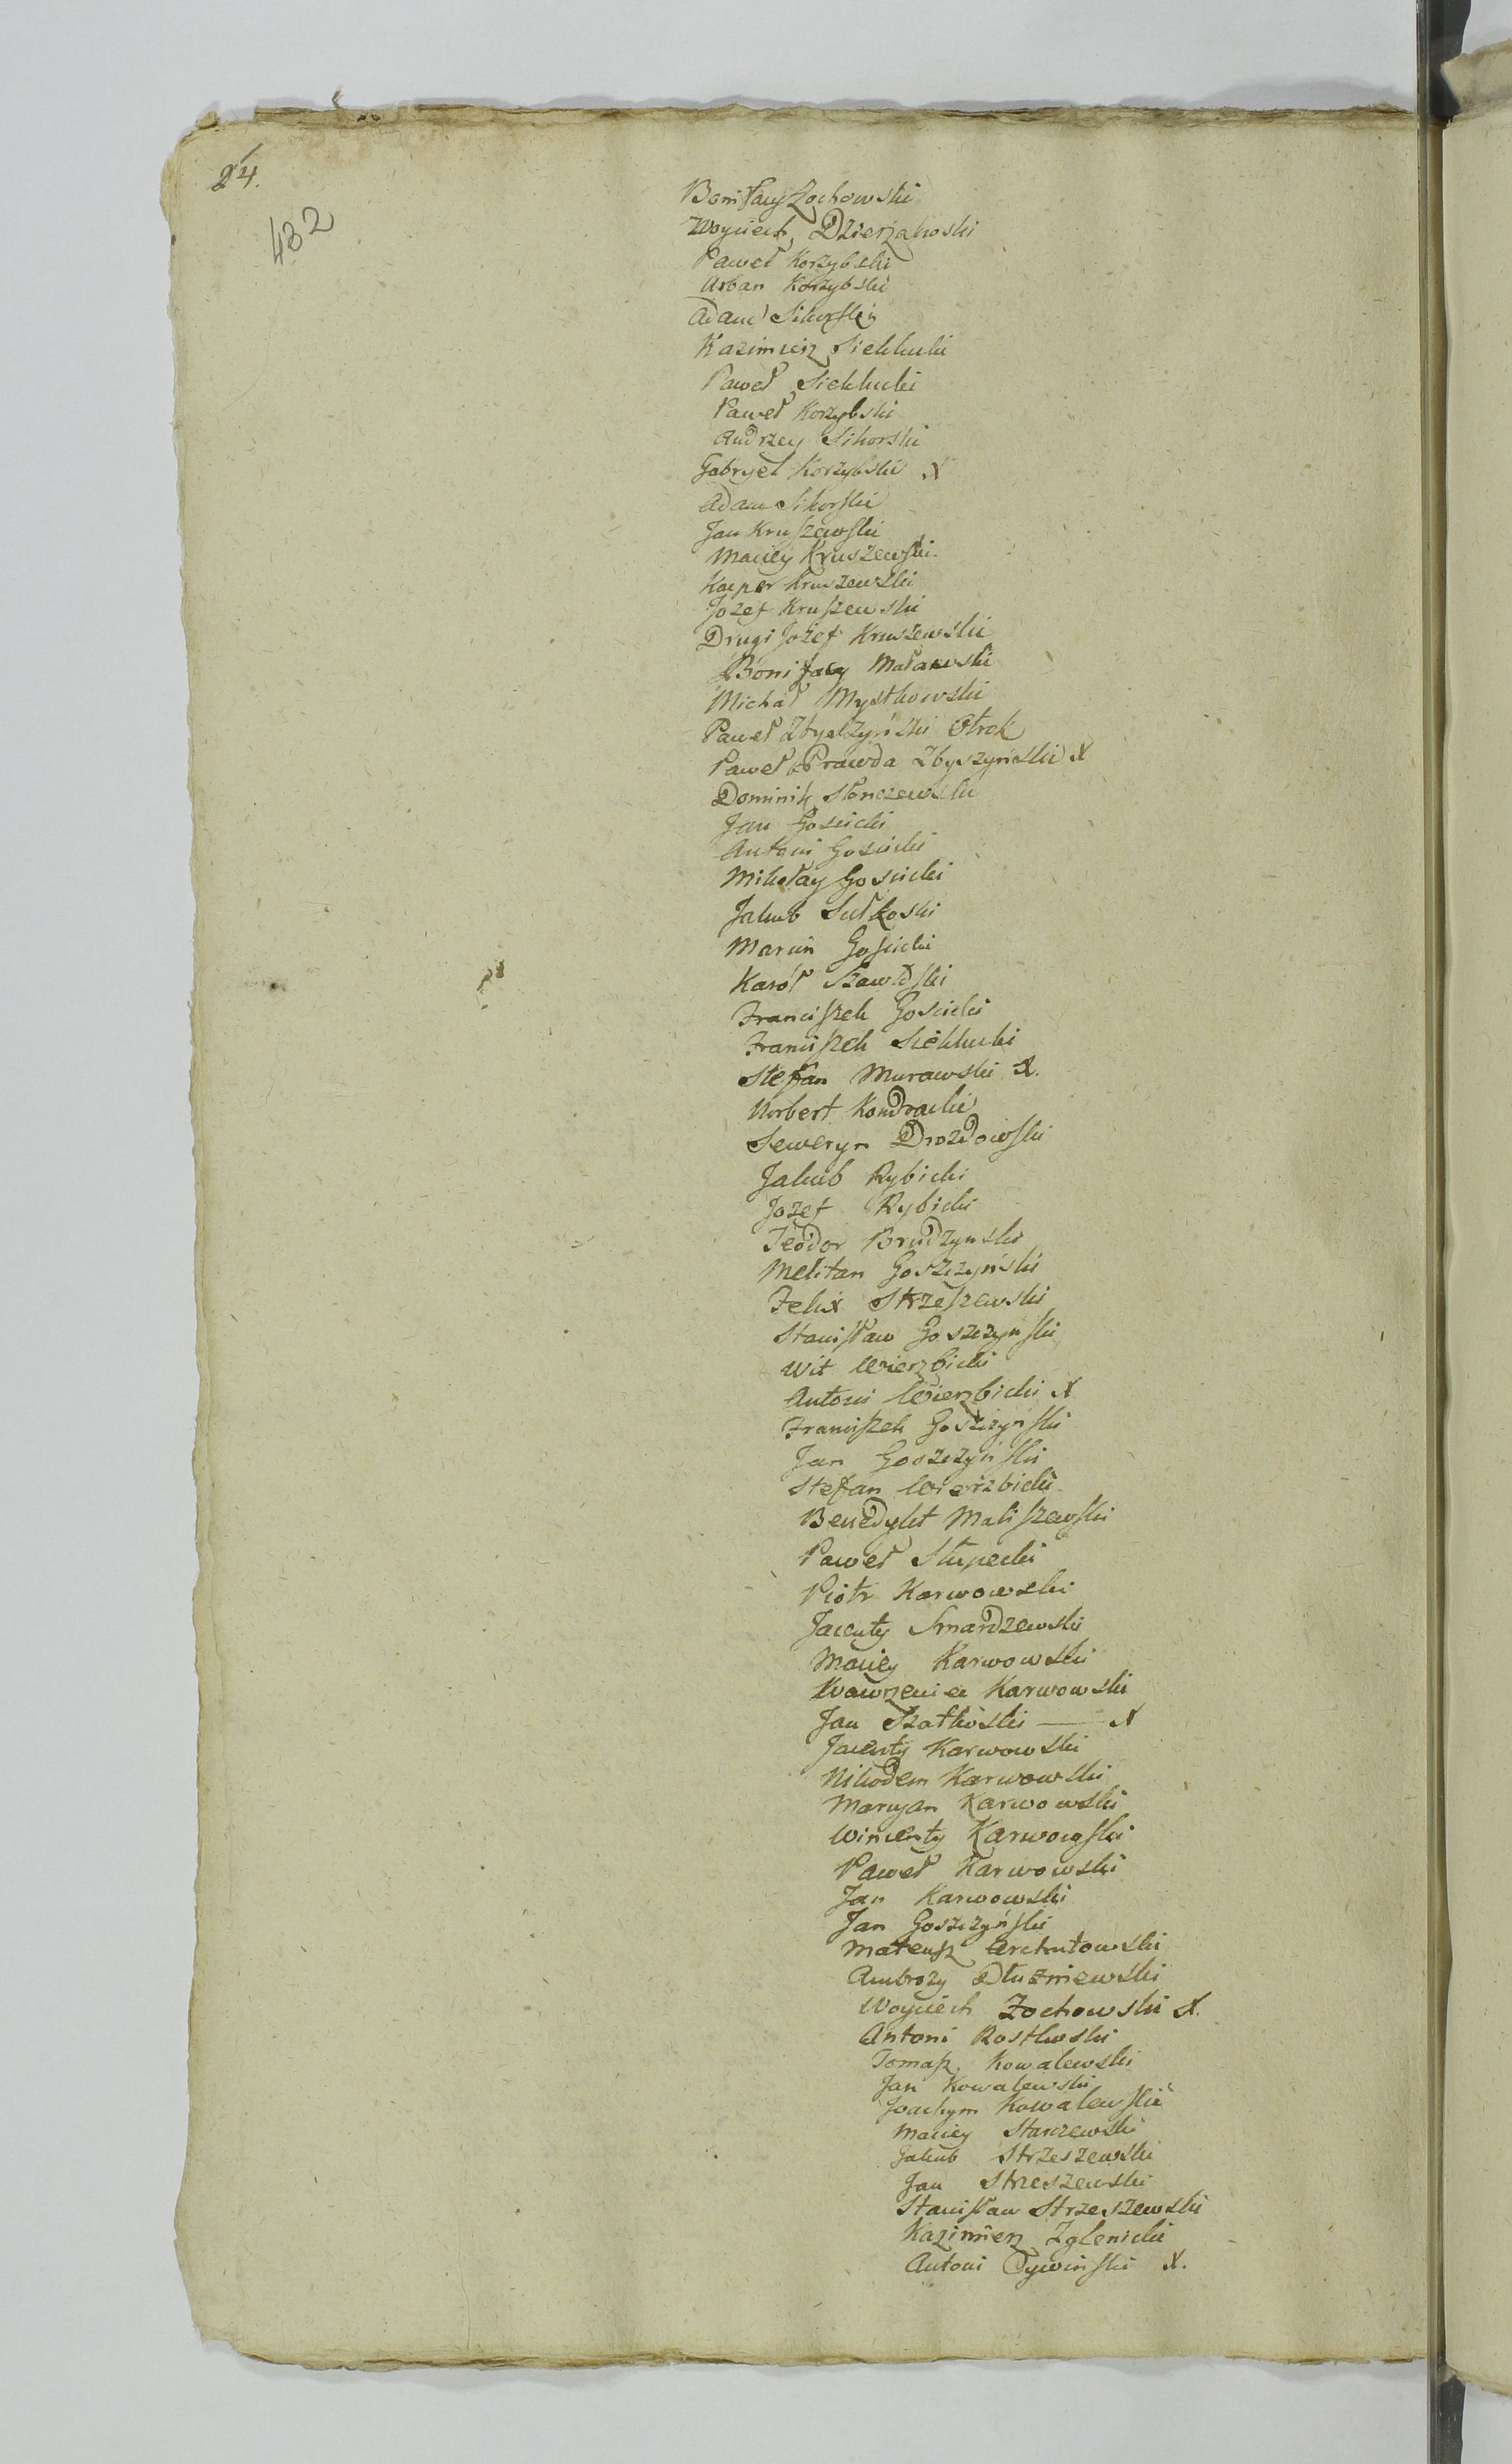 24.
432
Bonifacy Zochowski
Woyciech Dzierzanoski
Paweł Korzybski
Urban Korzybski
Adam Sikorski
Kazimierz Siekłucki
Paweł Siekłucki
Paweł Korzybski
Andrzey Sikorski
Gabryel Korzybski X
Adam Sikorski
Jan Kruszewski
Maciey Kruszewski.
Kacper Kruszewski
Jozef Kruszewski
Drugi Jozef Kruszewski
Bonifacy Małaewski
Michał Mystkowski
Paweł Zbyszyński Otrok
Paweł Prawda Zbyszyński X
Dominik Słonczewski
Jan Goscicki
Antoni Goscicki
Mikołay Goscicki
Jakub Sułkoski
Marcin Goscicki
Karól Szawłski
Franciszek Goscicki
Franciszek Siekłucki
Stefan Murawski X.
Norbert Kondracki
Seweryn Drozdowski
Jakub Rybicki
Jozef Rybicki
Teodor Brudzynski
Melitan Goszczyński
Felix Strzeszewski
Stanisław Goszczynski
Wit Wierzbicki
Antoni Wierzbicki X
Franciszek Goszczynski
Jan Goszczyński
Stefan Wierzbicki
Benedykt Maliszewski
Paweł Słupecki
Piotr Karwowski
Jacenty Smardzewski
Maciey Karwowski
Wawrzeniec Karwowski
Jan Szatkoski — X
Jacenty Karwowski
Nikodem Karwowski
Maryan Karwowski
Wincenty Karwowski
Paweł Karwowski
Jan Karwowski
Jan Goszczyński
Mateusz Archutowski
Ambrozy Dłuzniewski
Woyciech Zochowski X.
Antoni Rostkwski
Tomasz Kowalewski
Jan Kowalewski
Joachym Kowalewski
Maciey Stanczewski
Jakub Strzeszewski
Jan Strzeszewski
Stanisław Strzeszewski
Kazimierz Zglenicki
Antoni Cywinski X.